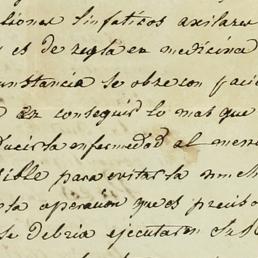 liones linfaticos axilares
es de regla en medicina
unstancia se obre con paci
en conseguir lo mas que
ducir la enfermedad al meno
sible para evitar la
ta operacion que es preciso
se debria ejecutar en